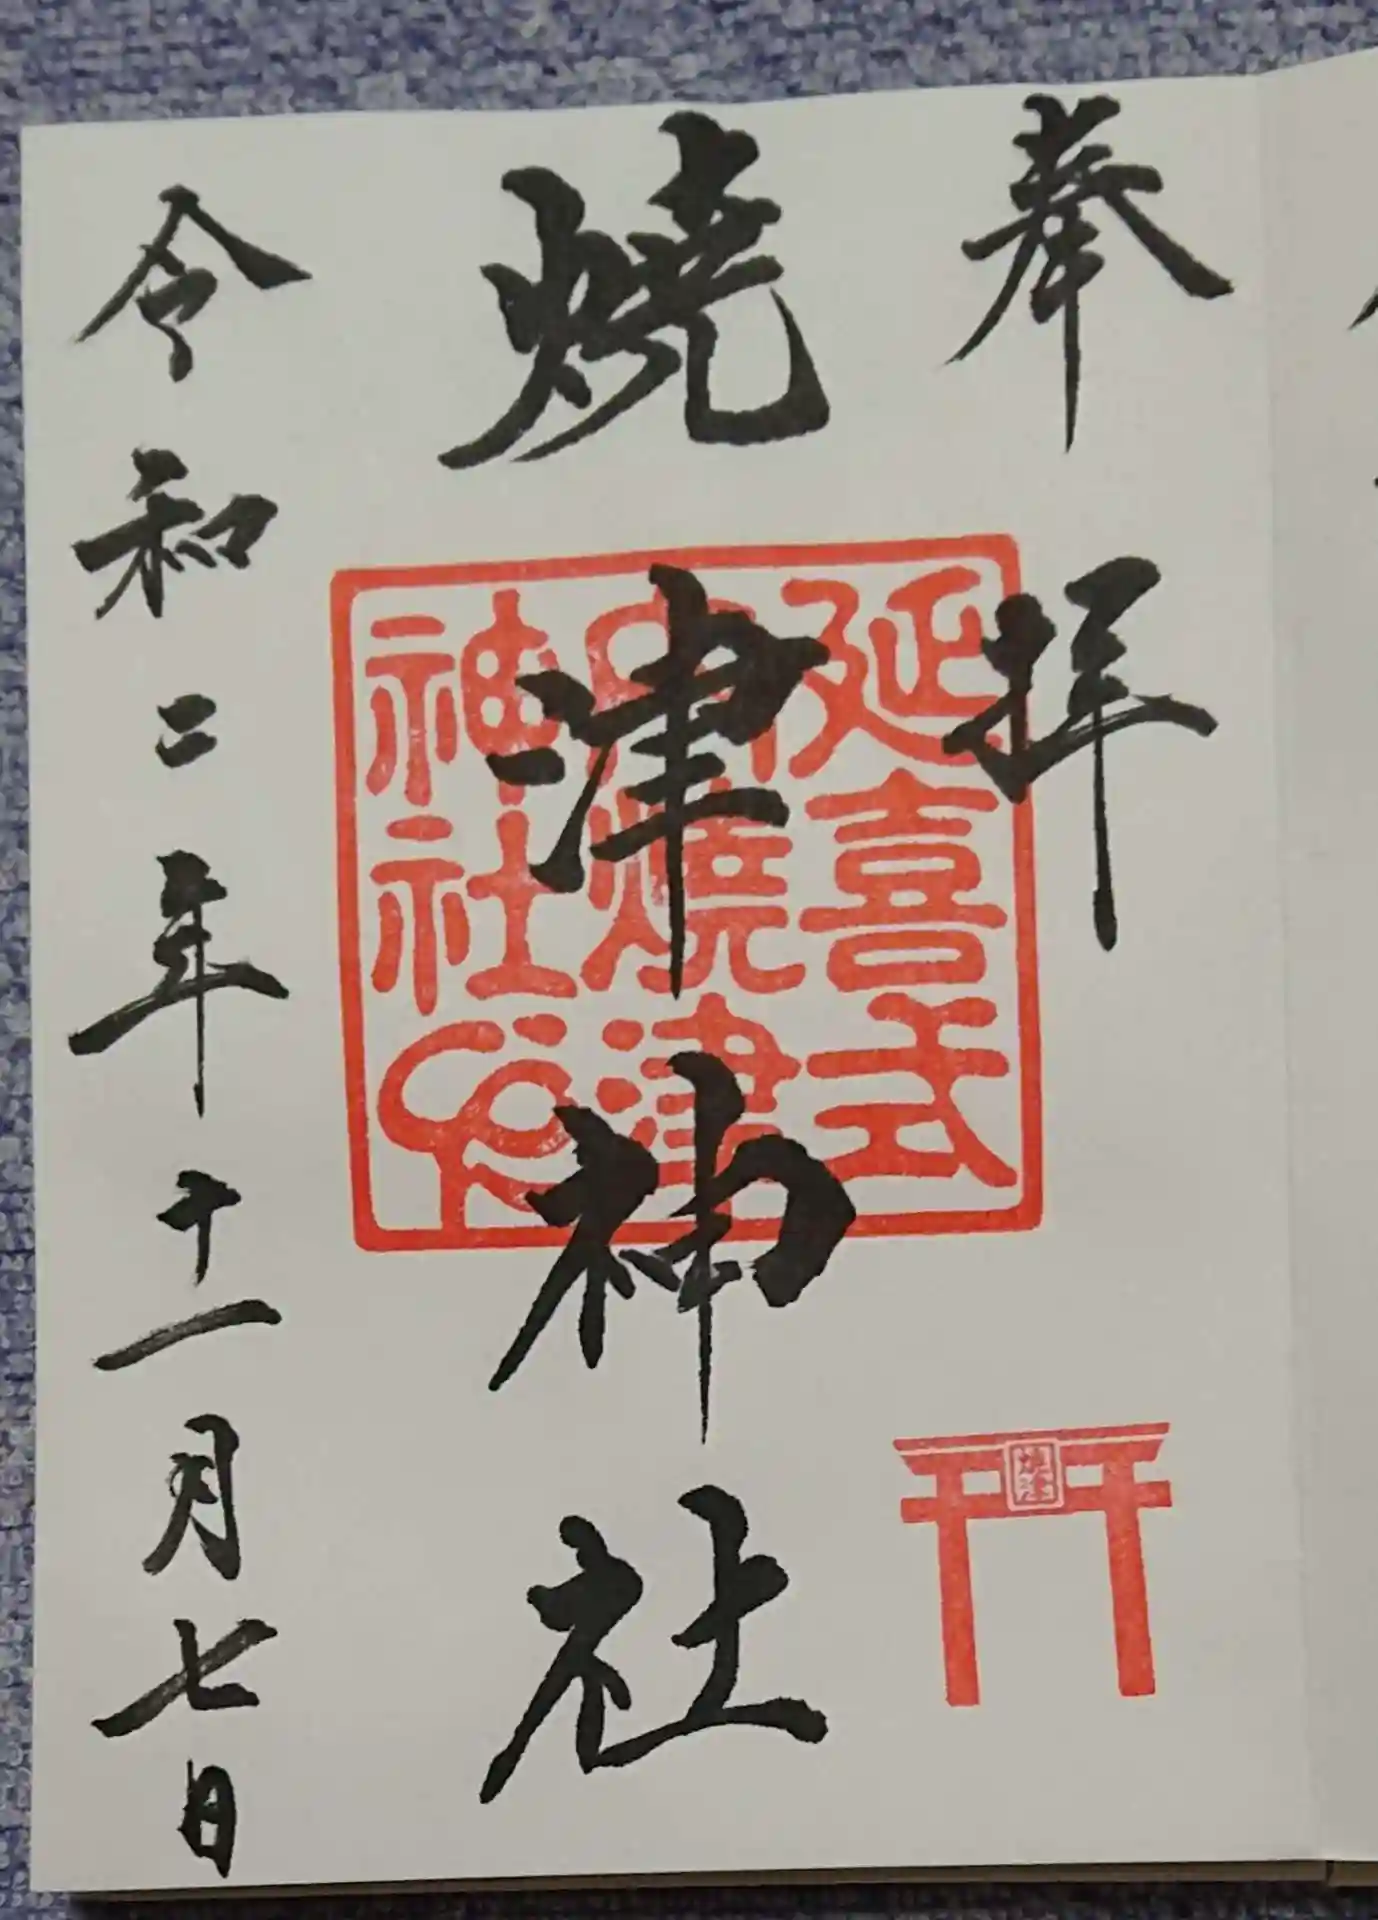 奉拝
焼津神社
延喜式
内焼津
神社印
焼津
令和二年十一月七日